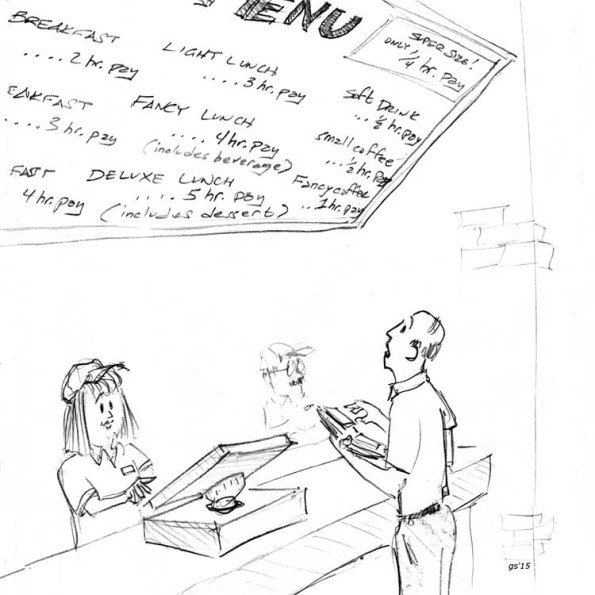 MENU
BREAKFAST
....2 hr. pay
EAKFAST
....3 hr. pay
FAST
4 hr. pay
LIGHT LUNCH
....3 hr. pay
FANCY LUNCH
....4 hr. pay
(includes beverage)
DELUXE LUNCH
....5 hr. pay
(includes dessert)
SUPER SIZE!
ONLY 1/4 hr. pay
Soft DRINK
...1/2 hr. pay
small coffee
...1/2 hr. pay
Fancy coffee
...1 hr. pay
gs'15